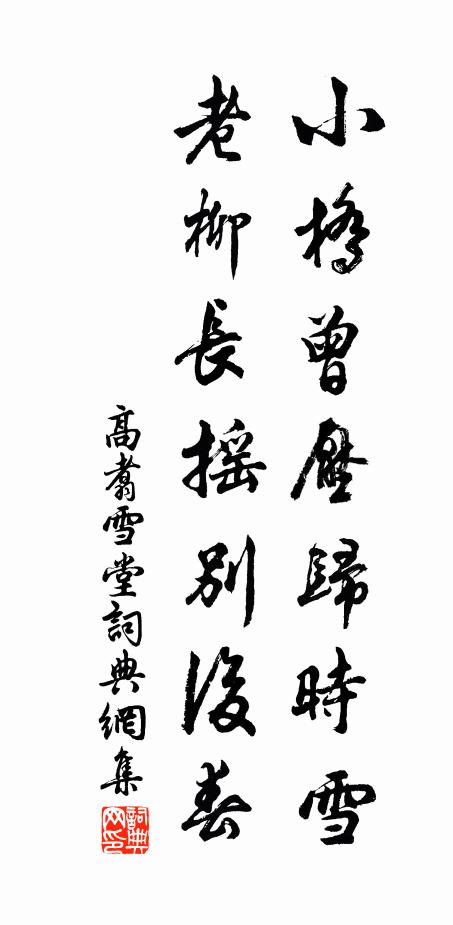 小橋曾壓歸時雪
老柳長搖別後春
高翥雪堂詞典網集
詞典
网印